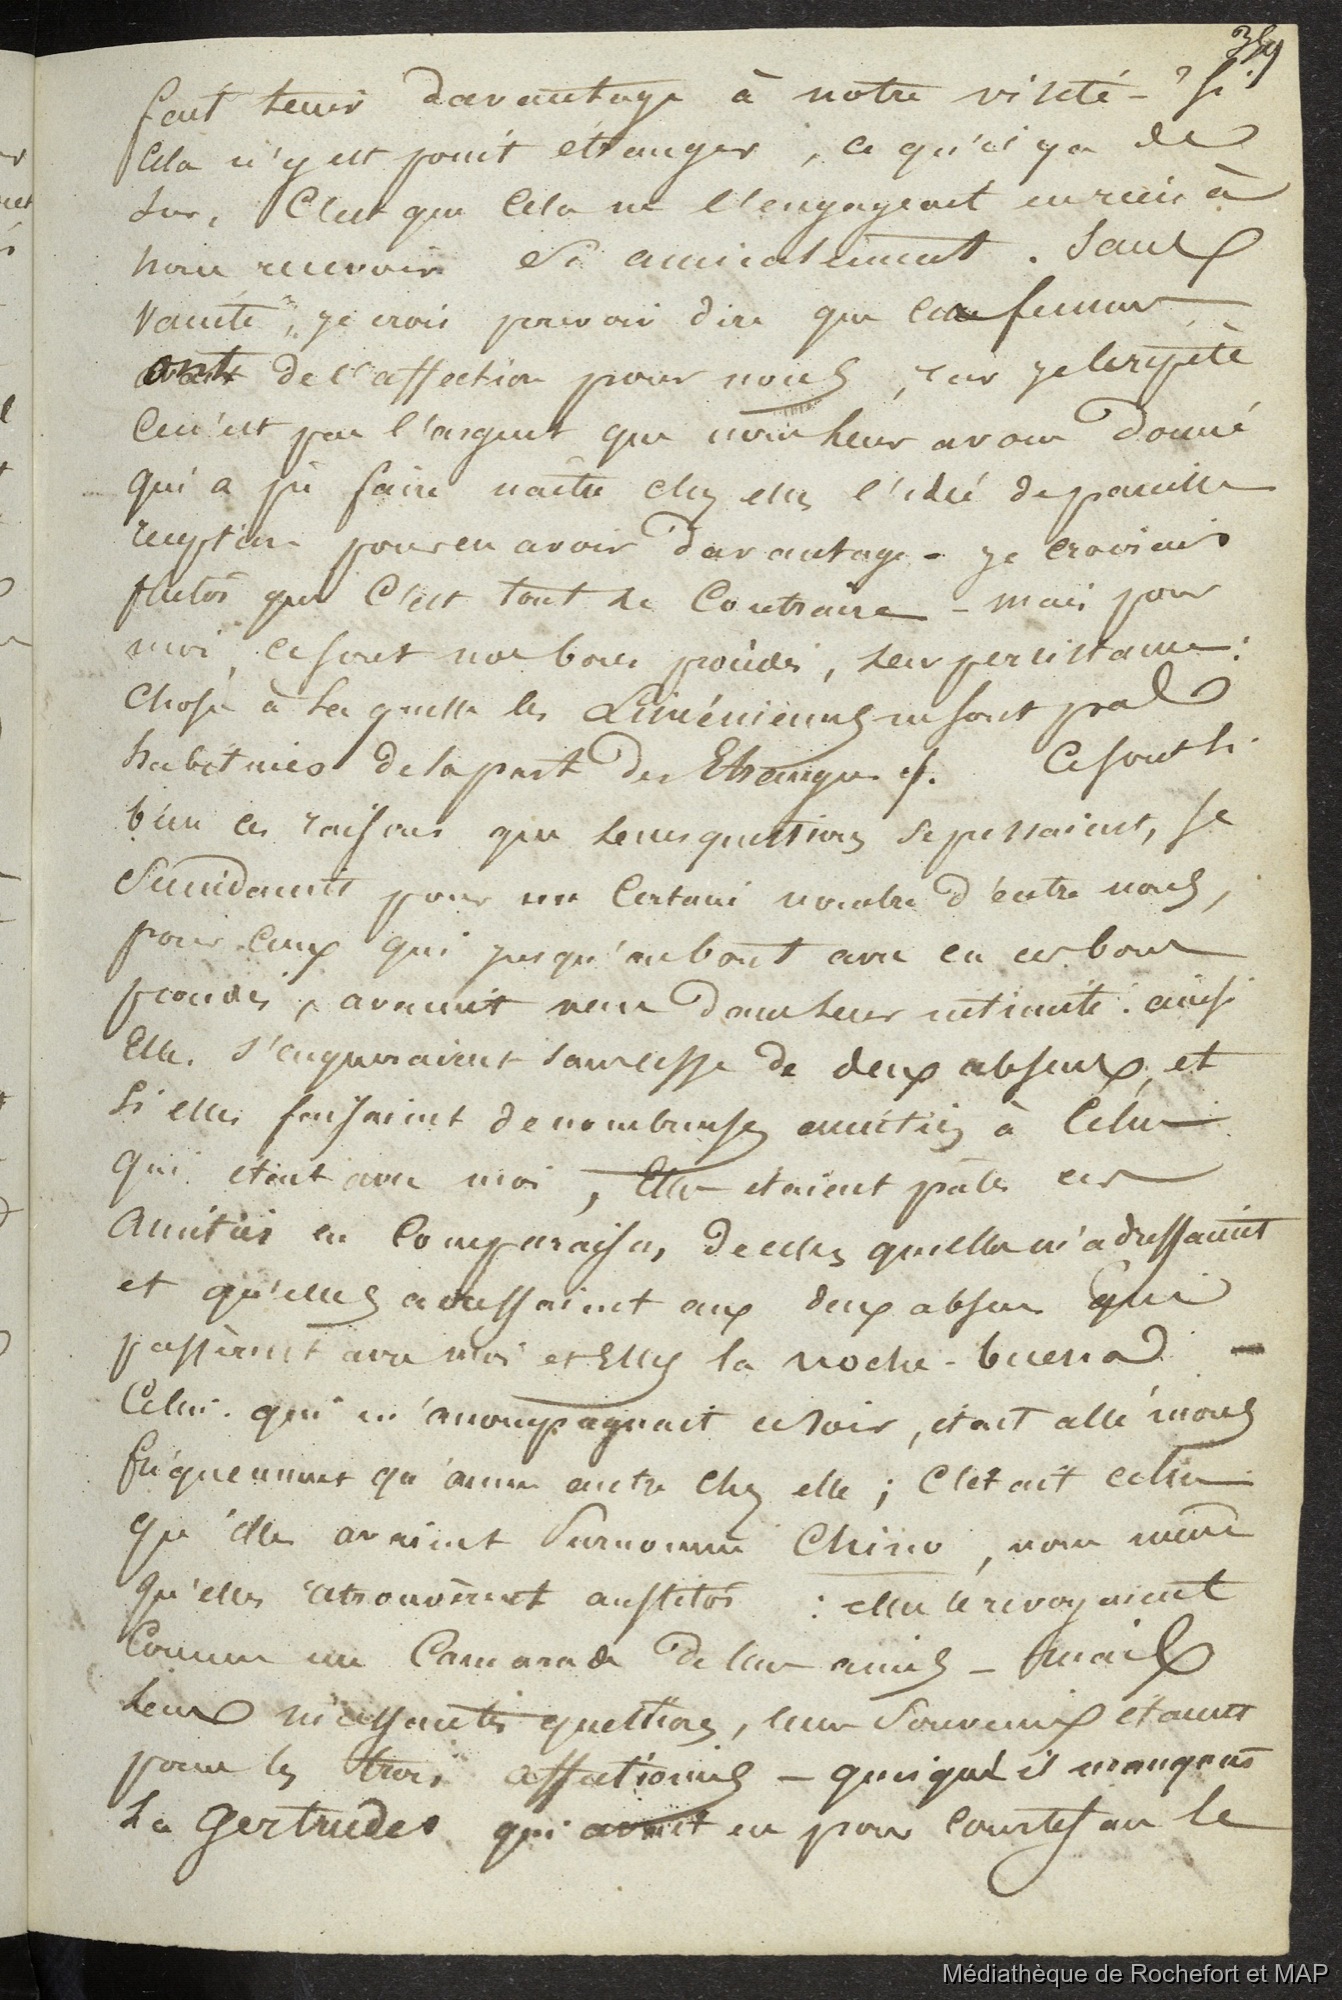 359
font tenir davantage à notre visite - Si
Cela n'y est point étranger, ce qu'il y a de
Sur, C'est que Cela ne l'engageait en rien à
nous recevoir Si amicalement. Sans
vanité, je crois pouvoir dire que ces femmes
ont de l'affection pour nous, car je le répète
Ce n'est pas l'argent que nous leur avons donné
qui a pû faire naître chez elles l'idée de pareille
reception pour en avoir davantage - je croirais
plutôt que C'est tout le Contraire - mais pour
moi, Ce sont nos bons procédés, leur persistance:
Chose à la quelle les Liméniennes ne sont pas
habituées de la part des Etrangers. Ce sont si
bien ces raisons que leurs questions se pressaient, se
Succédaient pour un Certain nombre d'entre nous,
pour Ceux qui jusqu'au bout avec eu ces bons
procédés, avaient vécu dans leur intimité. ainsi
Elles s'enquéraient sans cesse de deux absents, et
Si elles faisaient de nombreuses amitiés à Celui
qui était avec moi, Elles étaient pâles ces
Amitiés en Comparaison, de celles qu'elles m'adressaient
et qu'elles adressaient aux deux absens qui
passèrent avec moi et Elles la noche-buena -
Celui qui m'accompagnait ce soir, était allé moins
fréquemment qu'aucun autre chez elle; C'était celui
qu'elles avaient Surnommé Chino, nom même
qu'elles retrouvèrent aussitôt : elles le revoyaient
Comme un Camarade de leurs amis - mais
leurs incessantes questions, leurs Souvenirs étaient
pour les trois affectionnés - quoiqu'il manquât
La Gertrudes qui avait eu pour Courtisan le
Médiathèque de Rochefort et MAP